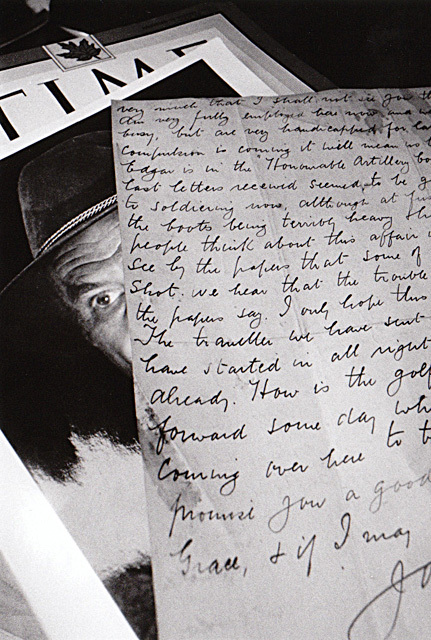 TIME
very much that I shall not see you th
Am very fully employed here now and w
busy, but are very handicapped for la
Compulsion is coming it will mean us
Edgar is in the Honourable Artillery Co
Last letters received seemed to be g
to soldiering now, although at firs
the boots being terribly heavy th
people think about this affair
see by the papers that some of
Shot. we hear that the trouble
the papers say. I only hope this
The traveller we have sent
have started in all right
already. How is the golf
forward some day wh
Coming over here to t
promise you a good
Grace, & if I may
Jo